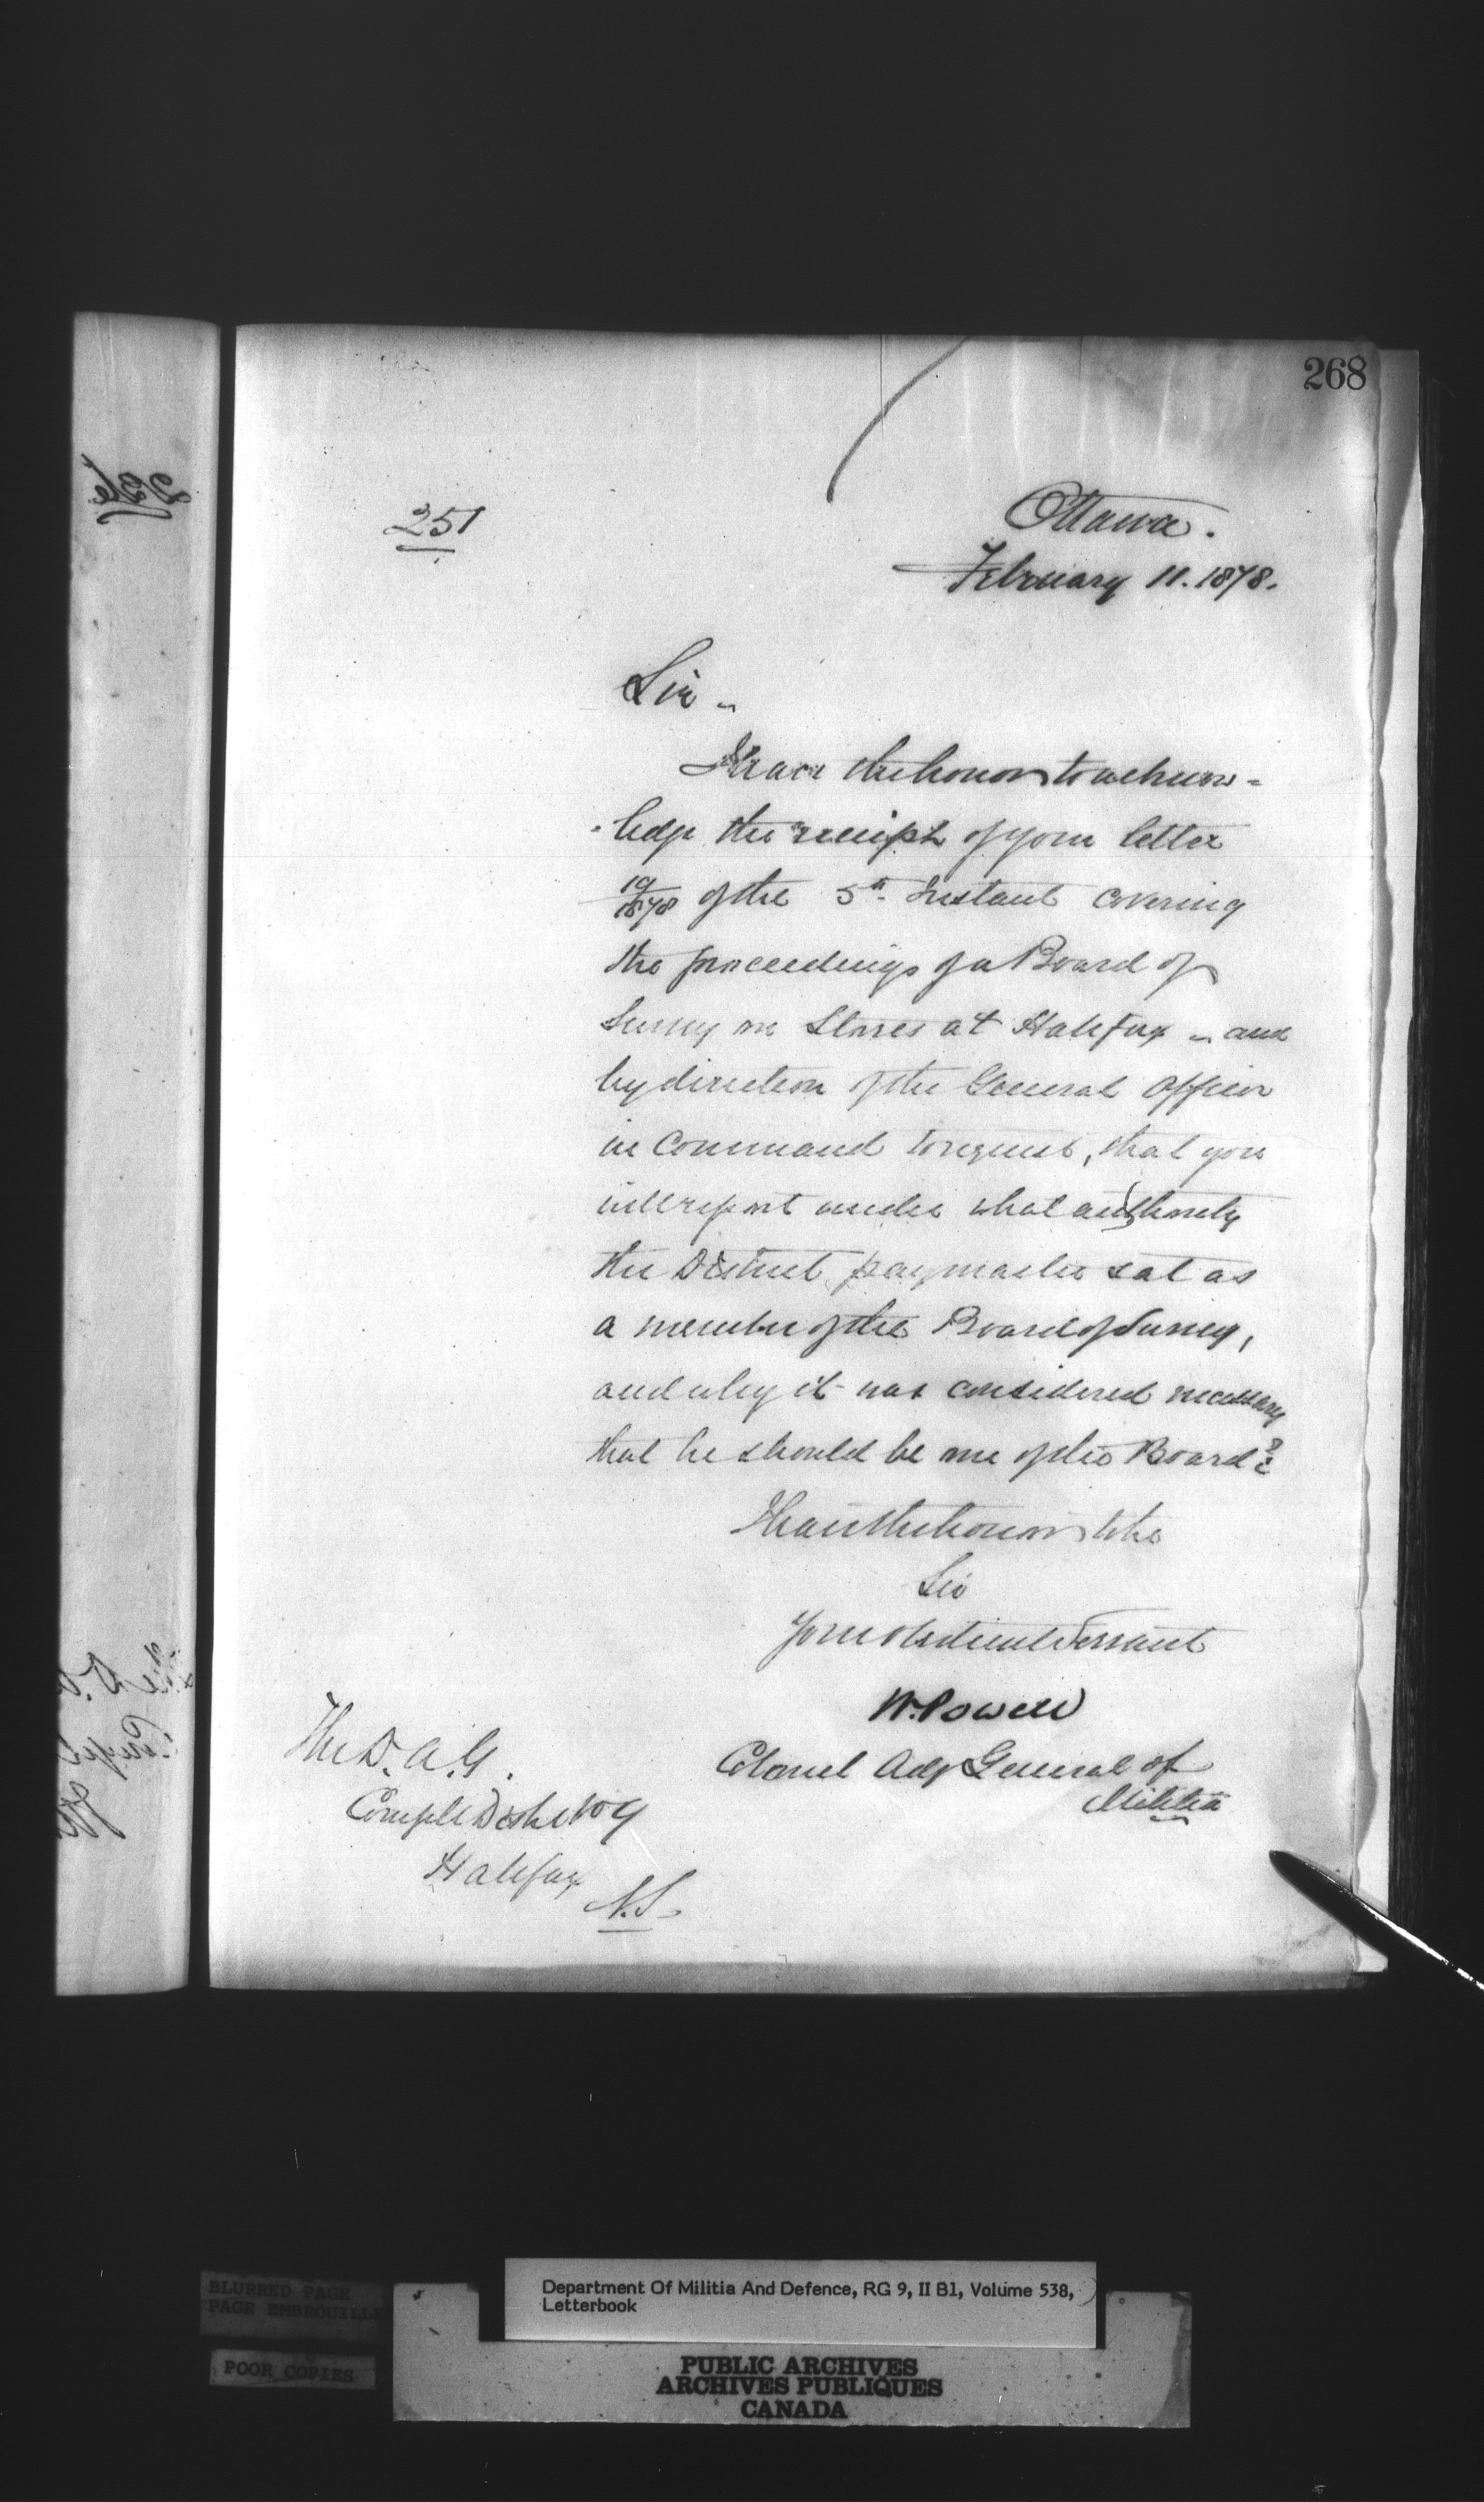 268
251
Ottawa.
February 11. 1878.
Sir –
I have the honor to acknow-
-ledge the receipt of your letter
19/1878 of the 5th Instant covering
the proceedings of a Board of
Survey on Stores at Halifax – and
by direction of the General Officer
in Command to request, that you
will report under what authority
the District paymaster sat as
a member of the Board of Survey,
and why it was considered necessary
that he should be one of the Board?
I have the honor to be
Sir
Your obedient Servant
W. Powell
Colonel Adjt General of
Militia
The D. A. G.
Comg Dist No 9
Halifax
N.S.
BLURRED PAGE
PAGE EMBROUILLE
POOR COPIES
Department Of Militia And Defence, RG 9, II B1, Volume 538,
Letterbook
PUBLIC ARCHIVES
ARCHIVES PUBLIQUES
CANADA